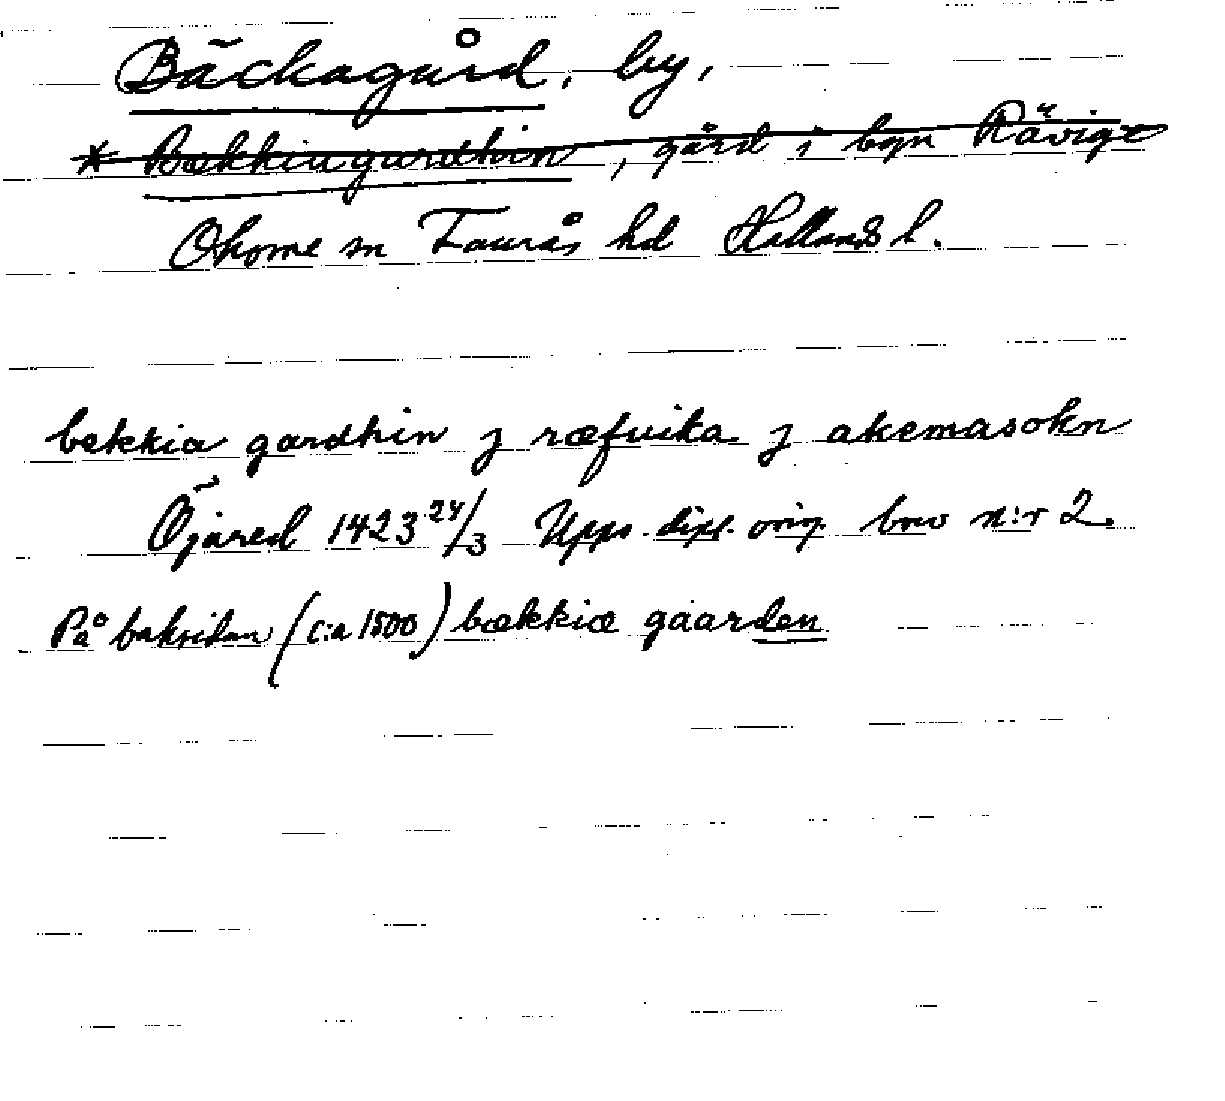 Bäckagård, by,
* Bækkiagardhin, gård i byn Rävige
Okome sn Faurås hd Hallands l.
bekkia gardhin j ræfuika j akemasokn
Öjared 1423 24/3 Upps. dipl. orig. brev n:r 2.
På baksidan (c:a 1500) bækkiæ gaarden